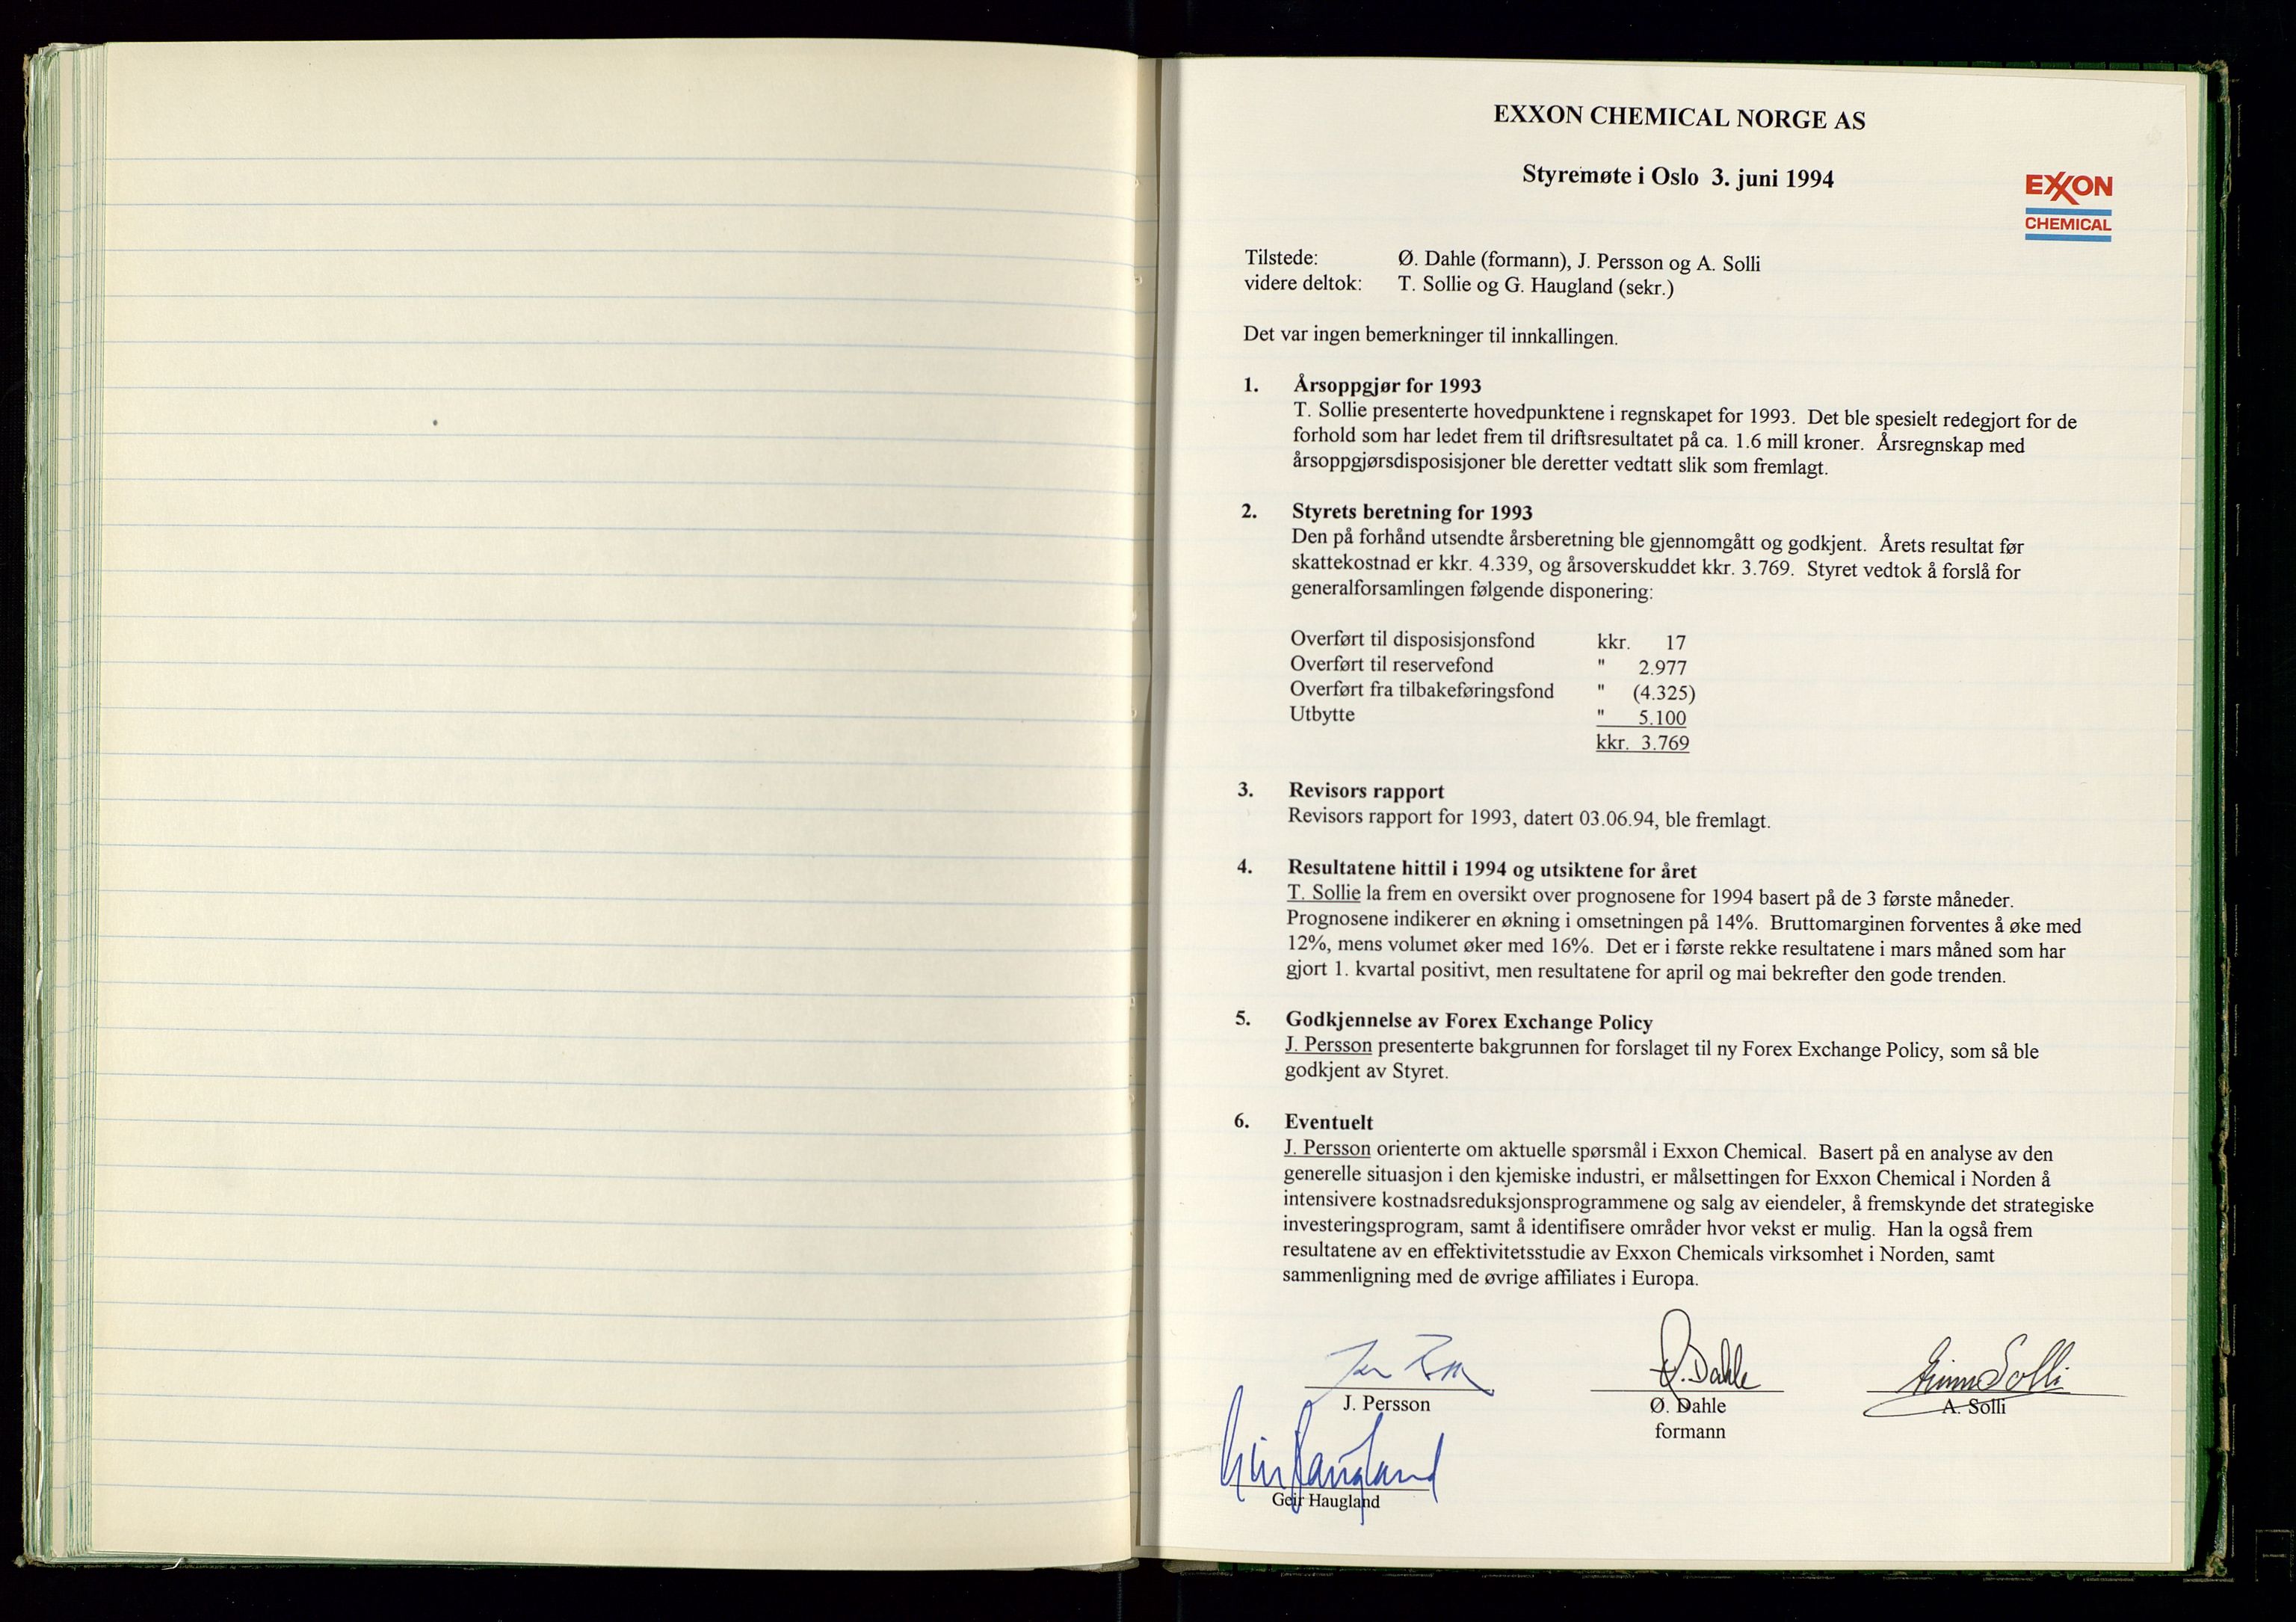 EXXON CHEMICAL NORGE AS
Styremøte i Oslo 3. juni 1994
EXXON
CHEMICAL
Tilstede: Ø. Dahle (formann), J. Persson og A. Solli
videre deltok: T. Sollie og G. Haugland (sekr.)
Det var ingen bemerkninger til innkallingen.
1. Årsoppgjør for 1993
T. Sollie presenterte hovedpunktene i regnskapet for 1993. Det ble spesielt redegjort for de
forhold som har ledet frem til driftsresultatet på ca. 1.6 mill kroner. Årsregnskap med
årsoppgjørsdisposisjoner ble deretter vedtatt slik som fremlagt.
2. Styrets beretning for 1993
Den på forhånd utsendte årsberetning ble gjennomgått og godkjent. Årets resultat før
skattekostnad er kkr. 4.339, og årsoverskuddet kkr. 3.769. Styret vedtok å forslå for
generalforsamlingen følgende disponering:
Overført til disposisjonsfond kkr. 17
Overført til reservefond " 2.977
Overført fra tilbakeføringsfond " (4.325)
Utbytte " 5.100
kkr. 3.769
3. Revisors rapport
Revisors rapport for 1993, datert 03.06.94, ble fremlagt.
4. Resultatene hittil i 1994 og utsiktene for året
T. Sollie la frem en oversikt over prognosene for 1994 basert på de 3 første måneder.
Prognosene indikerer en økning i omsetningen på 14%. Bruttomarginen forventes å øke med
12%, mens volumet øker med 16%. Det er i første rekke resultatene i mars måned som har
gjort 1. kvartal positivt, men resultatene for april og mai bekrefter den gode trenden.
5. Godkjennelse av Forex Exchange Policy
J. Persson presenterte bakgrunnen for forslaget til ny Forex Exchange Policy, som så ble
godkjent av Styret.
6. Eventuelt
J. Persson orienterte om aktuelle spørsmål i Exxon Chemical. Basert på en analyse av den
generelle situasjon i den kjemiske industri, er målsettingen for Exxon Chemical i Norden å
intensivere kostnadsreduksjonsprogrammene og salg av eiendeler, å fremskynde det strategiske
investeringsprogram, samt å identifisere områder hvor vekst er mulig. Han la også frem
resultatene av en effektivitetsstudie av Exxon Chemicals virksomhet i Norden, samt
sammenligning med de øvrige affiliates i Europa.
Ø. Dahle
Solli
J. Persson
Ø. Dahle
A. Solli
formann
Geir Haugland
Geir Haugland